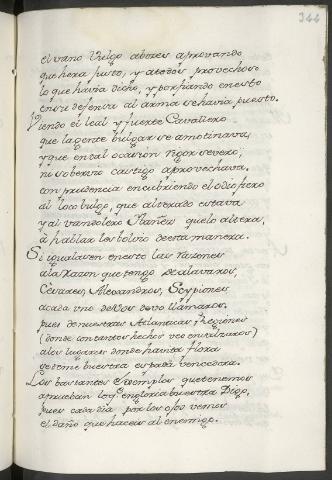 344
el vano Vulgo aboces aprovando
que hera justo, y atodos provechoso
lo que havia dicho, y porfiando enesto
en su defensa al arma se havia puesto.
Viendo el leal y fuerte Cavallero
que la gente bulgar se amotinava,
y que en tal ocasion rigor severo,
ni soberbio castigo aprovechava.
con prudencia encubriendo el odio fiero
al loco bulgo, que alterado estava
y al vandolero Ibañez que lo altera,
à hablar les bolvio de esta manera.
Si igualasen en esto las razones
a la razon que tengo de alavaros,
Cesares, Alexandros, Scypiones
a cada uno de vos devo llamaros.
pues de nuestras Atlanticas Regiones
(donde con tantos hechos veo enralzaros)
a los lugares donde havita flora
se teme buestra espada vencedora.
Los bastantes Exemplos que tenemos
aprueban los en gloria buestra Digo,
pues cada dia por los ojos vemos
el daño que haceis al enemigo.